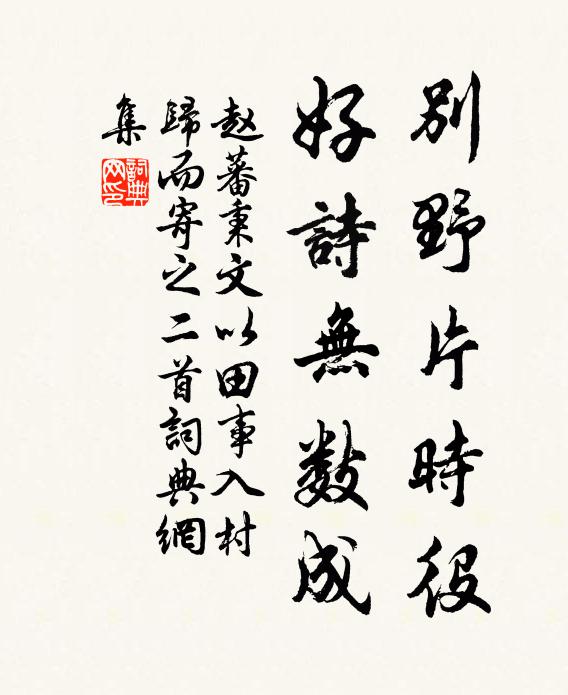 別野片時役
好詩無數成
赵蕃秉文以田事入村
歸而寄之二首詞典網
集
詞典网印